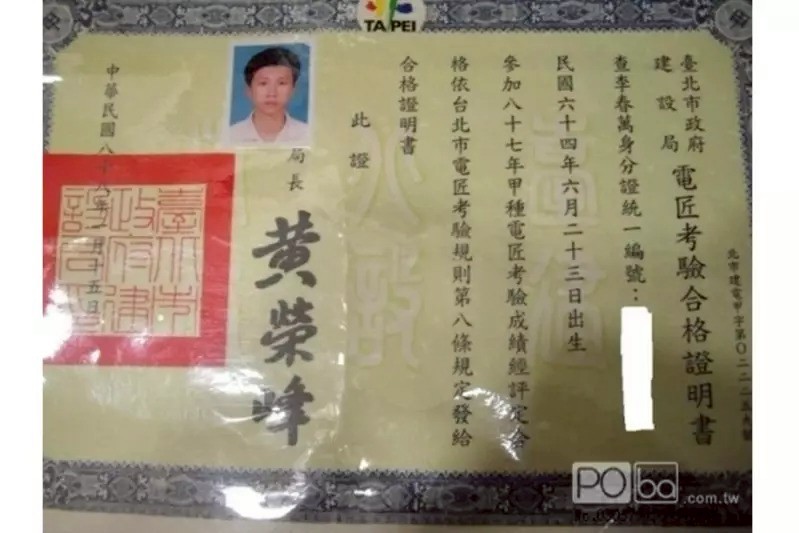 TAIPEI
臺北市政府
建設局
電匠考驗合格證明書
北市建電甲字第〇二二五六號
查李春萬身分證統一編號：
民國六十四年六月二十三日出生
參加八十七年甲種電匠考驗成績經評定合
格依台北市電匠考驗規則第八條規定發給
合格證明書
此證
局長 黃榮峰
臺北市
政府建
設局印
中華民國八十八年一月十五日
POba.com.tw